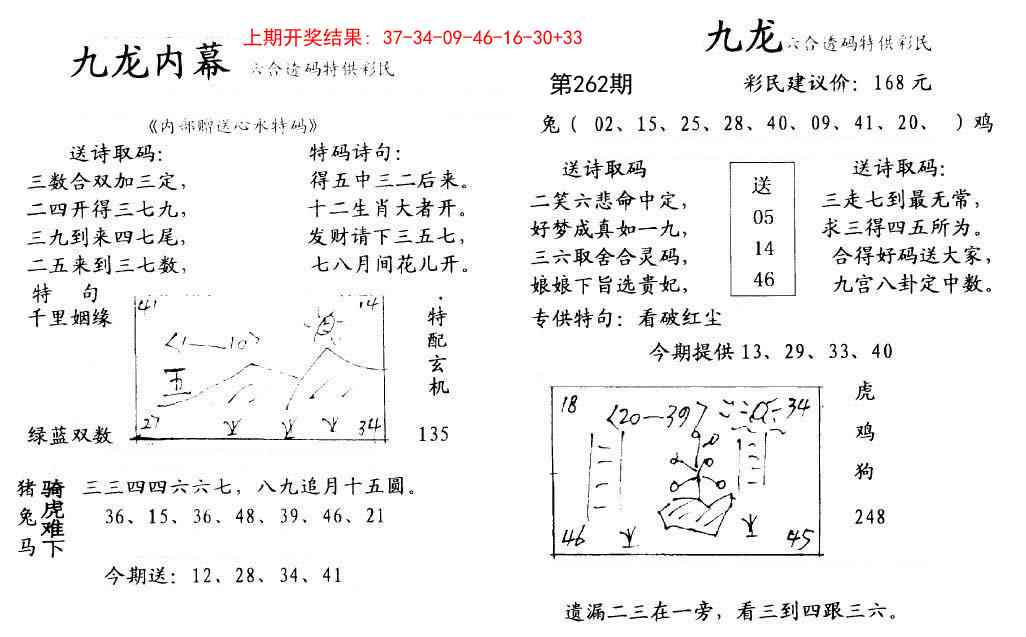 上期开奖结果：37-34-09-46-16-30+33
九龙内幕 六合透码特供彩民
《内部赠送心水特码》
送诗取码：
三数合双加三定，
二四开得三七九，
三九到来四七尾，
二五来到三七数，
特码诗句：
得五中三二后来。
十二生肖大者开。
发财请下三五七，
七八月间花儿开。
特 句
千里姻缘
绿蓝双数
41
14
〈1—10〉
五
27
34
特配玄机
135
猪兔马
骑虎难下
三三四四六六七，八九追月十五圆。
36、15、36、48、39、46、21
今期送：12、28、34、41
九龙六合透码特供彩民
第262期
彩民建议价：168元
兔（ 02、15、25、28、40、09、41、20、 ）鸡
送诗取码
二笑六悲命中定，
好梦成真如一九，
三六取舍合灵码，
娘娘下旨选贵妃，
送
05
14
46
送诗取码：
三走七到最无常，
求三得四五所为。
合得好码送大家，
九宫八卦定中数。
专供特句：看破红尘
今期提供13、29、33、40
18
〈20—39〉
34
46
45
虎
鸡
狗
248
遗漏二三在一旁，看三到四跟三六。